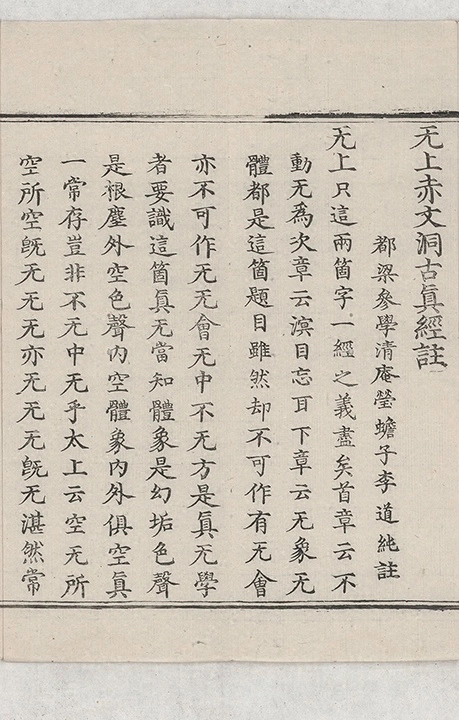 无上赤文洞古眞經註
都梁參學清庵瑩蟾子李道純註
无上只這兩箇字一經之義盡矣首章云不
動无爲次章云㝠目忘耳下章云无象无
體都是這箇題目雖然却不可作有无會
亦不可作无无會无中不无方是眞无學
者要識這箇眞无當知體象是幻垢色聲
是根塵外空色聲內空體象內外俱空眞
一常存豈非不无中无乎太上云空无所
空所空旣无无无亦无无无旣无湛然常